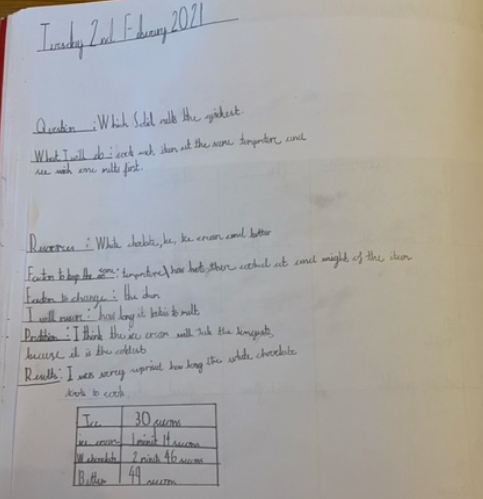 Tuesday 2nd February 2021
Question : Which Solid melts the quickest.
What I will do : cook each item at the same temperture and
see wich one melts first.
Resorces : White choclate, Ice, Ice cream and butter
Factor to keep the same : temperture / how hot there cooked at and weight of the item
Factor to change : the item
I will mesure : how long it takes to melt
Prediction : I think the ice cream will take the longest,
becuse it is the coldest
Results : I was very suprised how long the white chocolate
took to cook.
Ice 30 secons
ice cream 1 minit 14 secons
W chocolate 2 minits 46 secons
Butter 49 secons